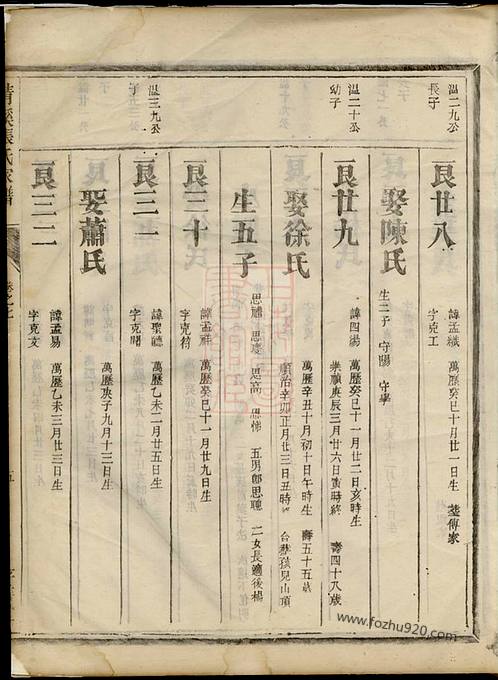 温二九公長子
艮廿八 諱孟繼 萬歷癸巳十月廿一日生
字克工
娶陳氏 生二子 守陽 守學
温二十公幼子
艮廿九 諱四易 萬歷癸巳十一月廿二日亥時生
崇禎庚辰三月廿六日寅時終 壽四十八歲
娶徐氏 萬歷辛丑十月初十日午時生 壽五十五歲
順治辛卯正月廿三日丑時終 合葬孩兒山頂
生五子 思禧 思慶 思高 思悌 五男郎思聰 二女長適後楊
艮三十 諱孟祥 萬歷癸巳十一月廿九日生
字克符
温三九公子
艮三一 諱聖聽 萬歷乙未二月廿五日生
字克聞
娶蕭氏 萬歷庚子九月十三日生
艮三二 諱孟易 萬歷乙未三月廿三日生
字克文
張氏家譜
卷之七
五
www.fozhu920.com